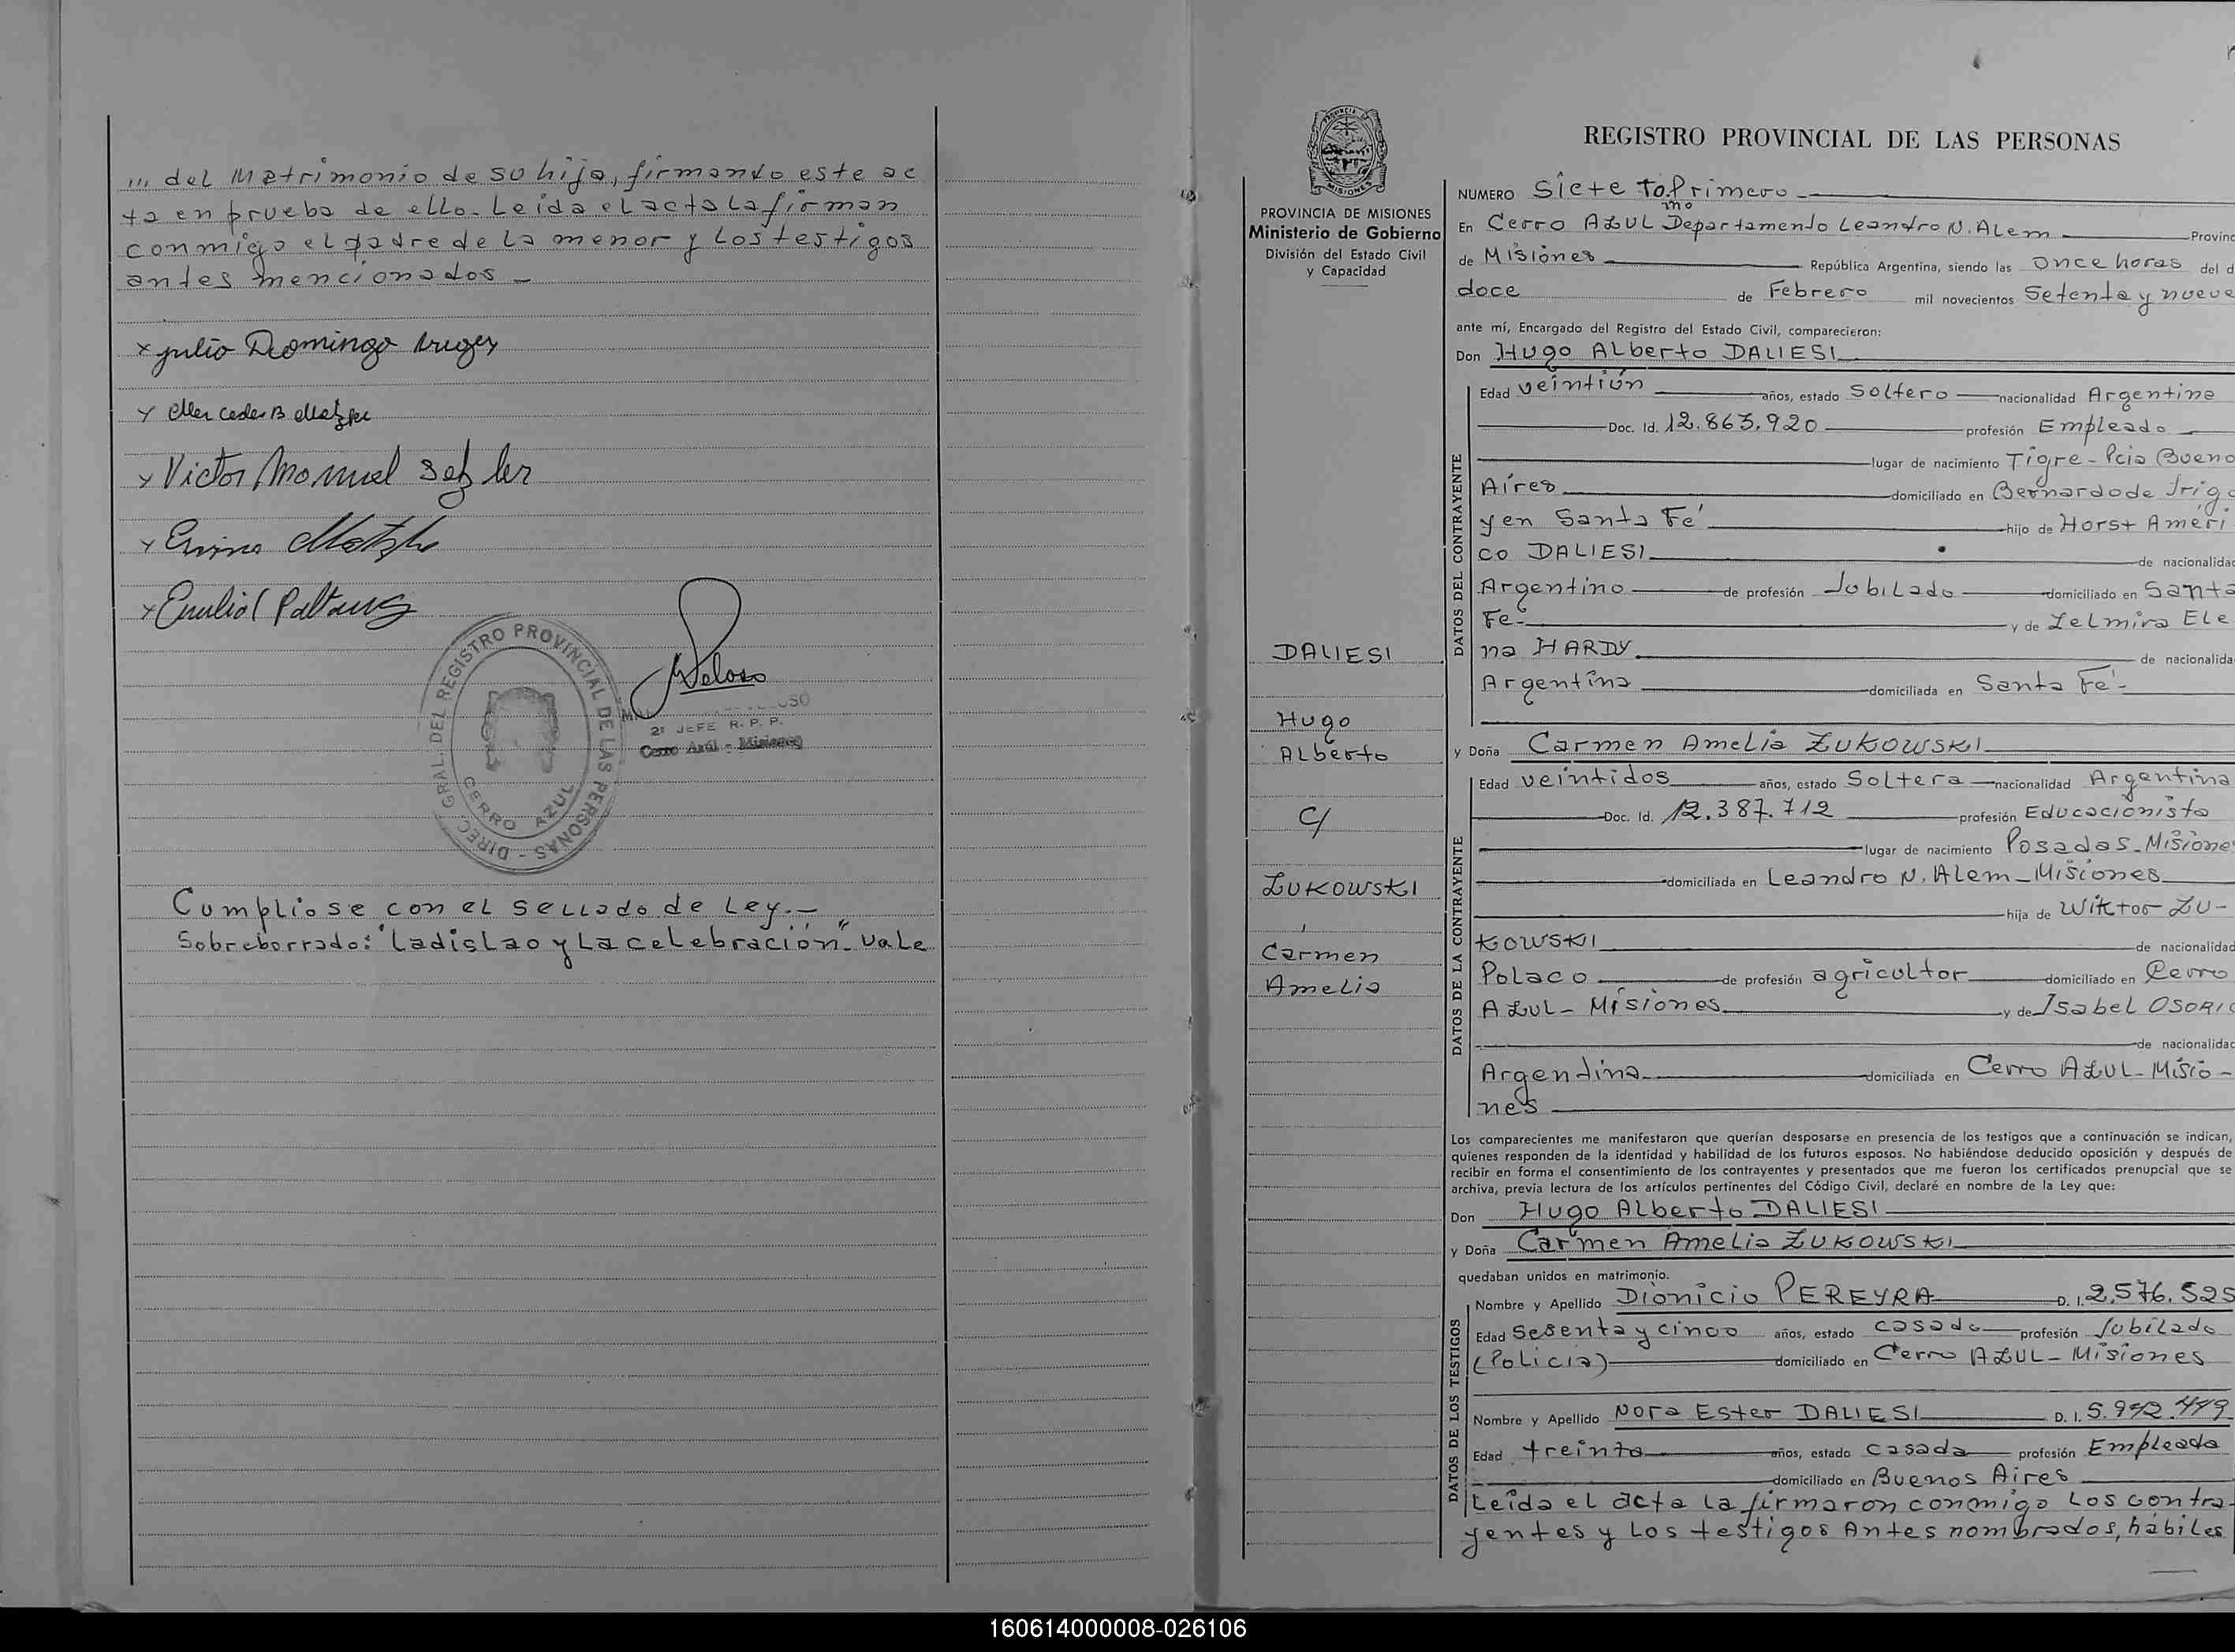 ... del Matrimonio de su hija, firmando este ac
ta en prueba de ello. Leída el acta la firman
conmigo el padre de la menor y los testigos
antes mencionados -
x Julio Domingo
x Mercedes B
x Victor Manuel
x
x Emilio
DIREC. GRAL. DEL REGISTRO PROVINCIAL DE LAS PERSONAS -
CERRO AZUL
Veloso
2º JEFE R. P. P.
Cerro Azúl - Misiones
Cumpliose con el sellado de Ley.-
Sobreborrado: "Ladislao y La celebración" Vale
PROVINCIA DE MISIONES
PROVINCIA DE MISIONES
Ministerio de Gobierno
División del Estado Civil
y Capacidad
DALIESI
Hugo
Alberto
C/
ZUKOWSKI
Carmen
Amelia
REGISTRO PROVINCIAL DE LAS PERSONAS
NUMERO Siete Primero -
En Cerro AZUL Departamento Leandro N. Alem Provinc
de Misiones República Argentina, siendo las once horas del d
doce de Febrero mil novecientos Setenta y nueve
ante mí, Encargado del Registro del Estado Civil, comparecieron:
Don Hugo Alberto DALIESI
DATOS DEL CONTRAYENTE
Edad veintiún años, estado Soltero nacionalidad Argentina
Doc. Id. 12.863.920 profesión Empleado
lugar de nacimiento Tigre - Pcia Bueno
Aires domiciliado en Bernardo de Irigo
yen Santa Fé hijo de Horst Améri
co DALIESI de nacionalidad
Argentino de profesión Jubilado domiciliado en Santa
Fe- y de Zelmira Ele
na HARDY de nacionalida
Argentina domiciliada en Santa Fé-
y Doña Carmen Amelia ZUKOWSKI
DATOS DE LA CONTRAYENTE
Edad veintidos años, estado Soltera nacionalidad Argentina
Doc. Id. 12.387.712 profesión Educacionista
lugar de nacimiento Posadas-Misiones
domiciliada en Leandro N. Alem-Misiones
hija de Wiktor ZU-
KOWSKI de nacionalidad
Polaco de profesión agricultor domiciliado en Cerro
AZUL- Misiones y de Isabel OSORIO
de nacionalidad
Argentina domiciliada en Cerro AZUL-Misio-
nes
Los comparecientes me manifestaron que querían desposarse en presencia de los testigos que a continuación se indican,
quienes responden de la identidad y habilidad de los futuros esposos. No habiéndose deducido oposición y después de
recibir en forma el consentimiento de los contrayentes y presentados que me fueron los certificados prenupcial que se
archiva, previa lectura de los artículos pertinentes del Código Civil, declaré en nombre de la Ley que:
Don Hugo Alberto DALIESI
y Doña Carmen Amelia ZUKOWSKI
quedaban unidos en matrimonio.
DATOS DE LOS TESTIGOS
Nombre y Apellido Dionicio PEREYRA D. I. 2.576.525
Edad Sesenta y cinco años, estado casado profesión Jubilado
(Policia) domiciliado en Cerro AZUL-Misiones
Nombre y Apellido Nora Ester DALIESI D. I. 5.942.449
Edad treinta años, estado casada profesión Empleada
domiciliado en Buenos Aires
Leída el acta la firmaron conmigo los contra-
yentes y los testigos Antes nombrados, hábiles
160614000008-026106